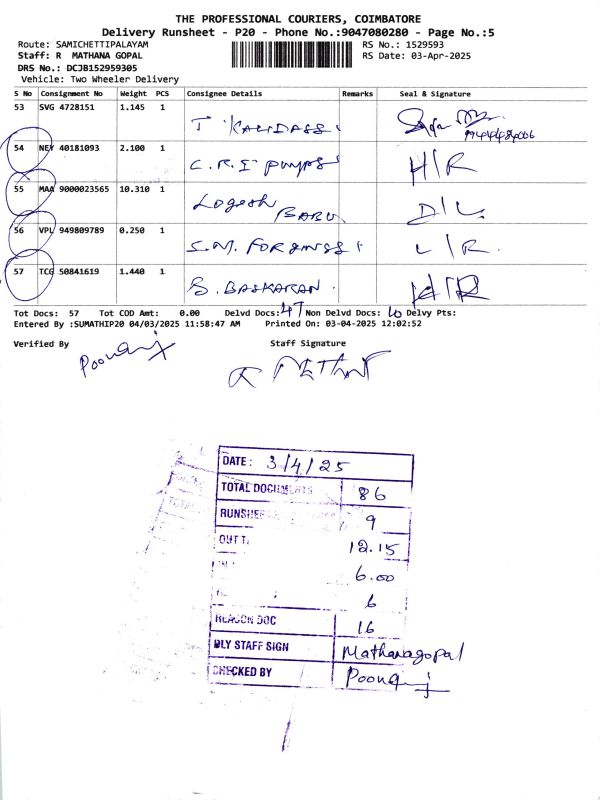 THE PROFESSIONAL COURIERS, COIMBATORE
Delivery Runsheet - P20 - Phone No.:9047080280 - Page No.:5
Route: SAMICHETTIPALAYAM RS No.: 1529593
Staff: R MATHANA GOPAL RS Date: 03-Apr-2025
DRS No.: DCJB152959305
Vehicle: Two Wheeler Delivery
S No Consignment No Weight PCS Consignee Details Remarks Seal & Signature
53 SVG 4728151 1.145 1 T KALIDASS
54 NEY 40181093 2.100 1 C.R.I pumps H/R
55 MAA 9000023565 10.310 1 Logesh BABU D/L
56 VPL 949809789 0.250 1 S.M. FORGINGS L/R.
57 TCG 50841619 1.440 1 S. BASKARAN H/R
Tot Docs: 57 Tot COD Amt: 0.00 Delvd Docs: 47 Non Delvd Docs: 10 Delvy Pts:
Entered By :SUMATHIP20 04/03/2025 11:58:47 AM Printed On: 03-04-2025 12:02:52
Verified By Staff Signature
DATE: 3/4/25
TOTAL DOCUMENTS 86
9
OUT 12.15
6.00
6
REASON DOC 16
DLY STAFF SIGN Mathanagopal
CHECKED BY